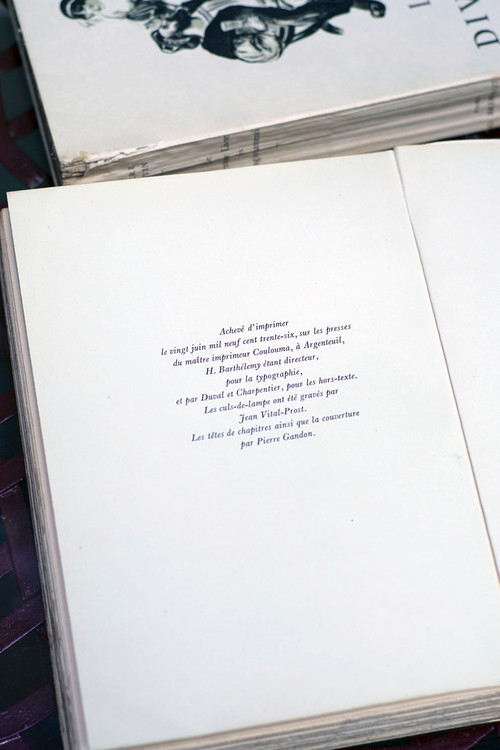 I
DIV
Achevé d'imprimer
le vingt juin mil neuf cent trente-six, sur les presses
du maître imprimeur Coulouma, à Argenteuil,
H. Barthélemy étant directeur,
pour la typographie,
et par Duval et Charpentier, pour les hors-texte.
Les culs-de-lampe ont été gravés par
Jean Vital-Prost.
Les têtes de chapitres ainsi que la couverture
par Pierre Gandon.